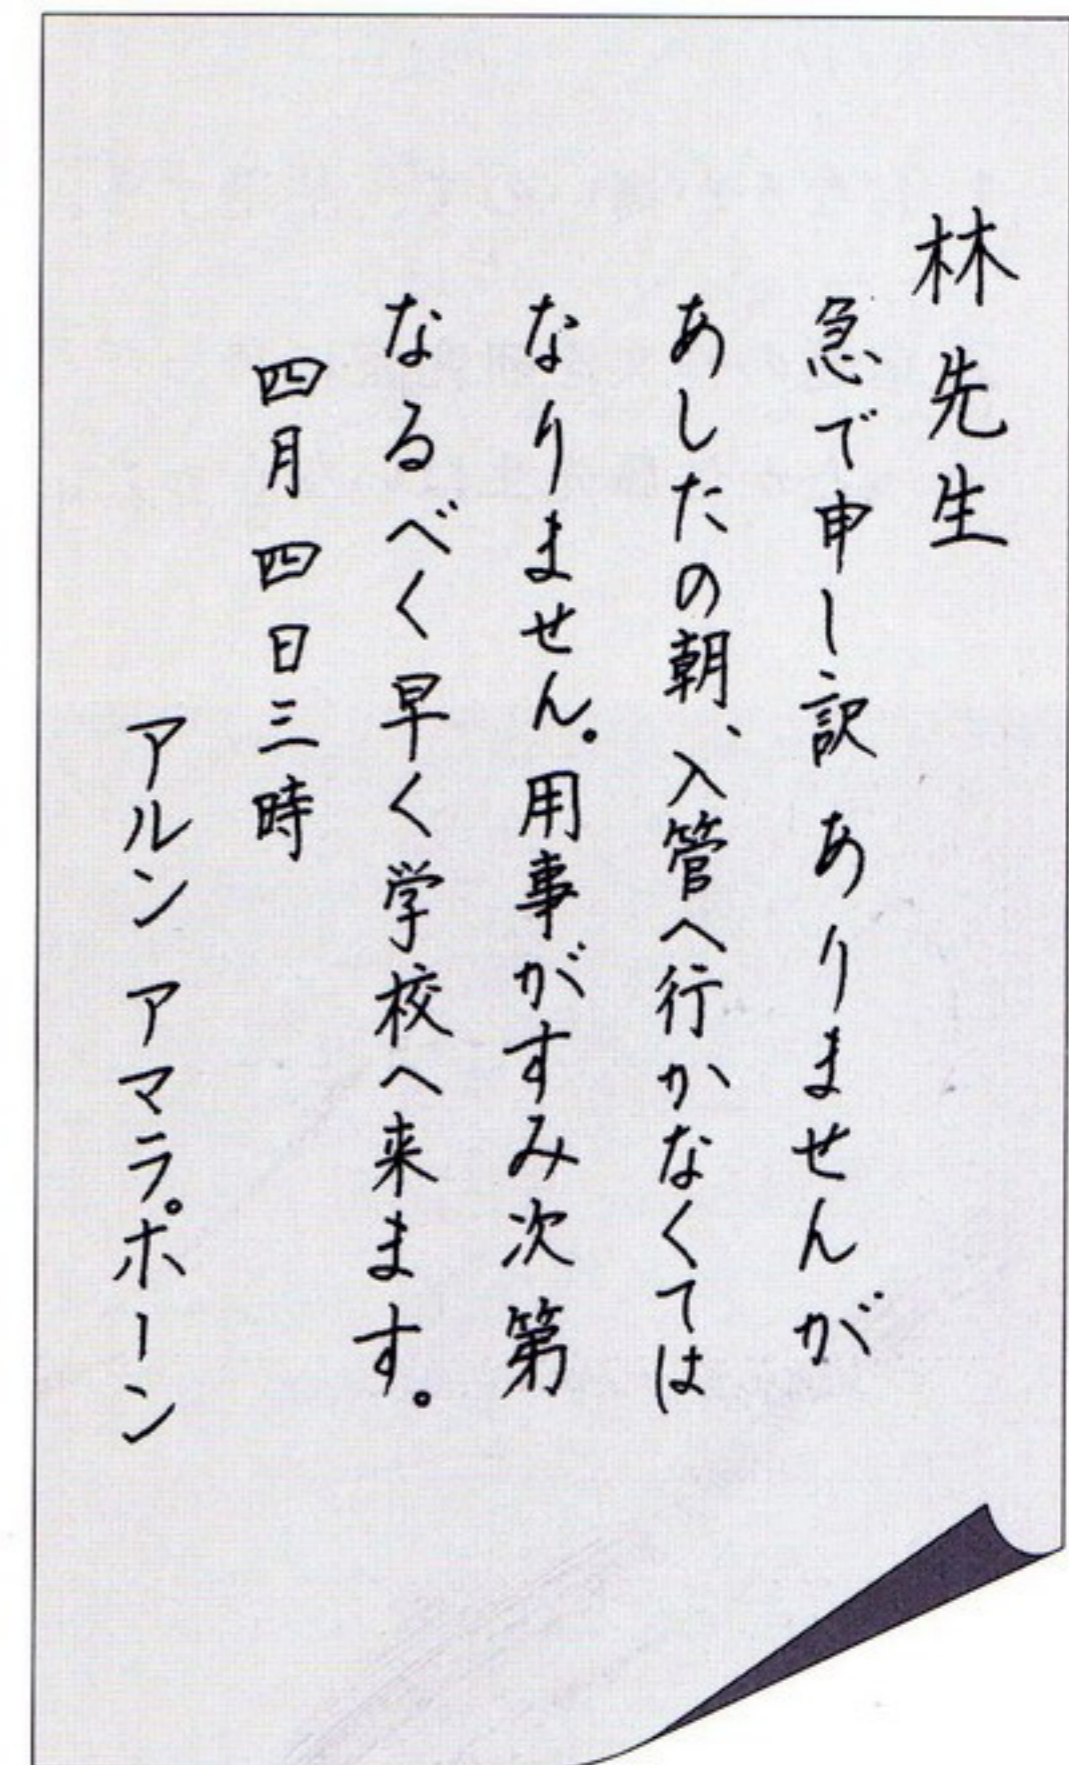 林先生
急で申し訳ありませんが
あしたの朝、入管へ行かなくては
なりません。用事がすみ次第
なるべく早く学校へ来ます。
四月四日三時
アルン アマラ。ホーン